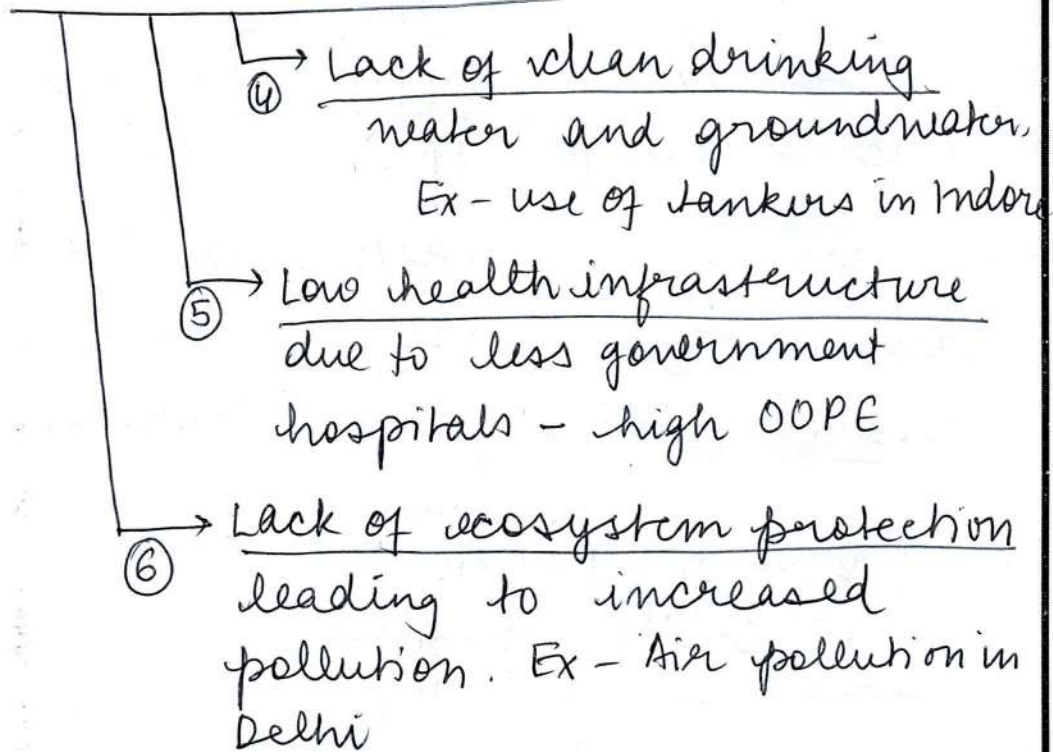 ④ → Lack of clean drinking
water and groundwater.
Ex - use of tankers in Indore
⑤ → Low health infrastructure
due to less government
hospitals - high OOPE
⑥ → Lack of ecosystem protection
leading to increased
pollution. Ex - Air pollution in
Delhi